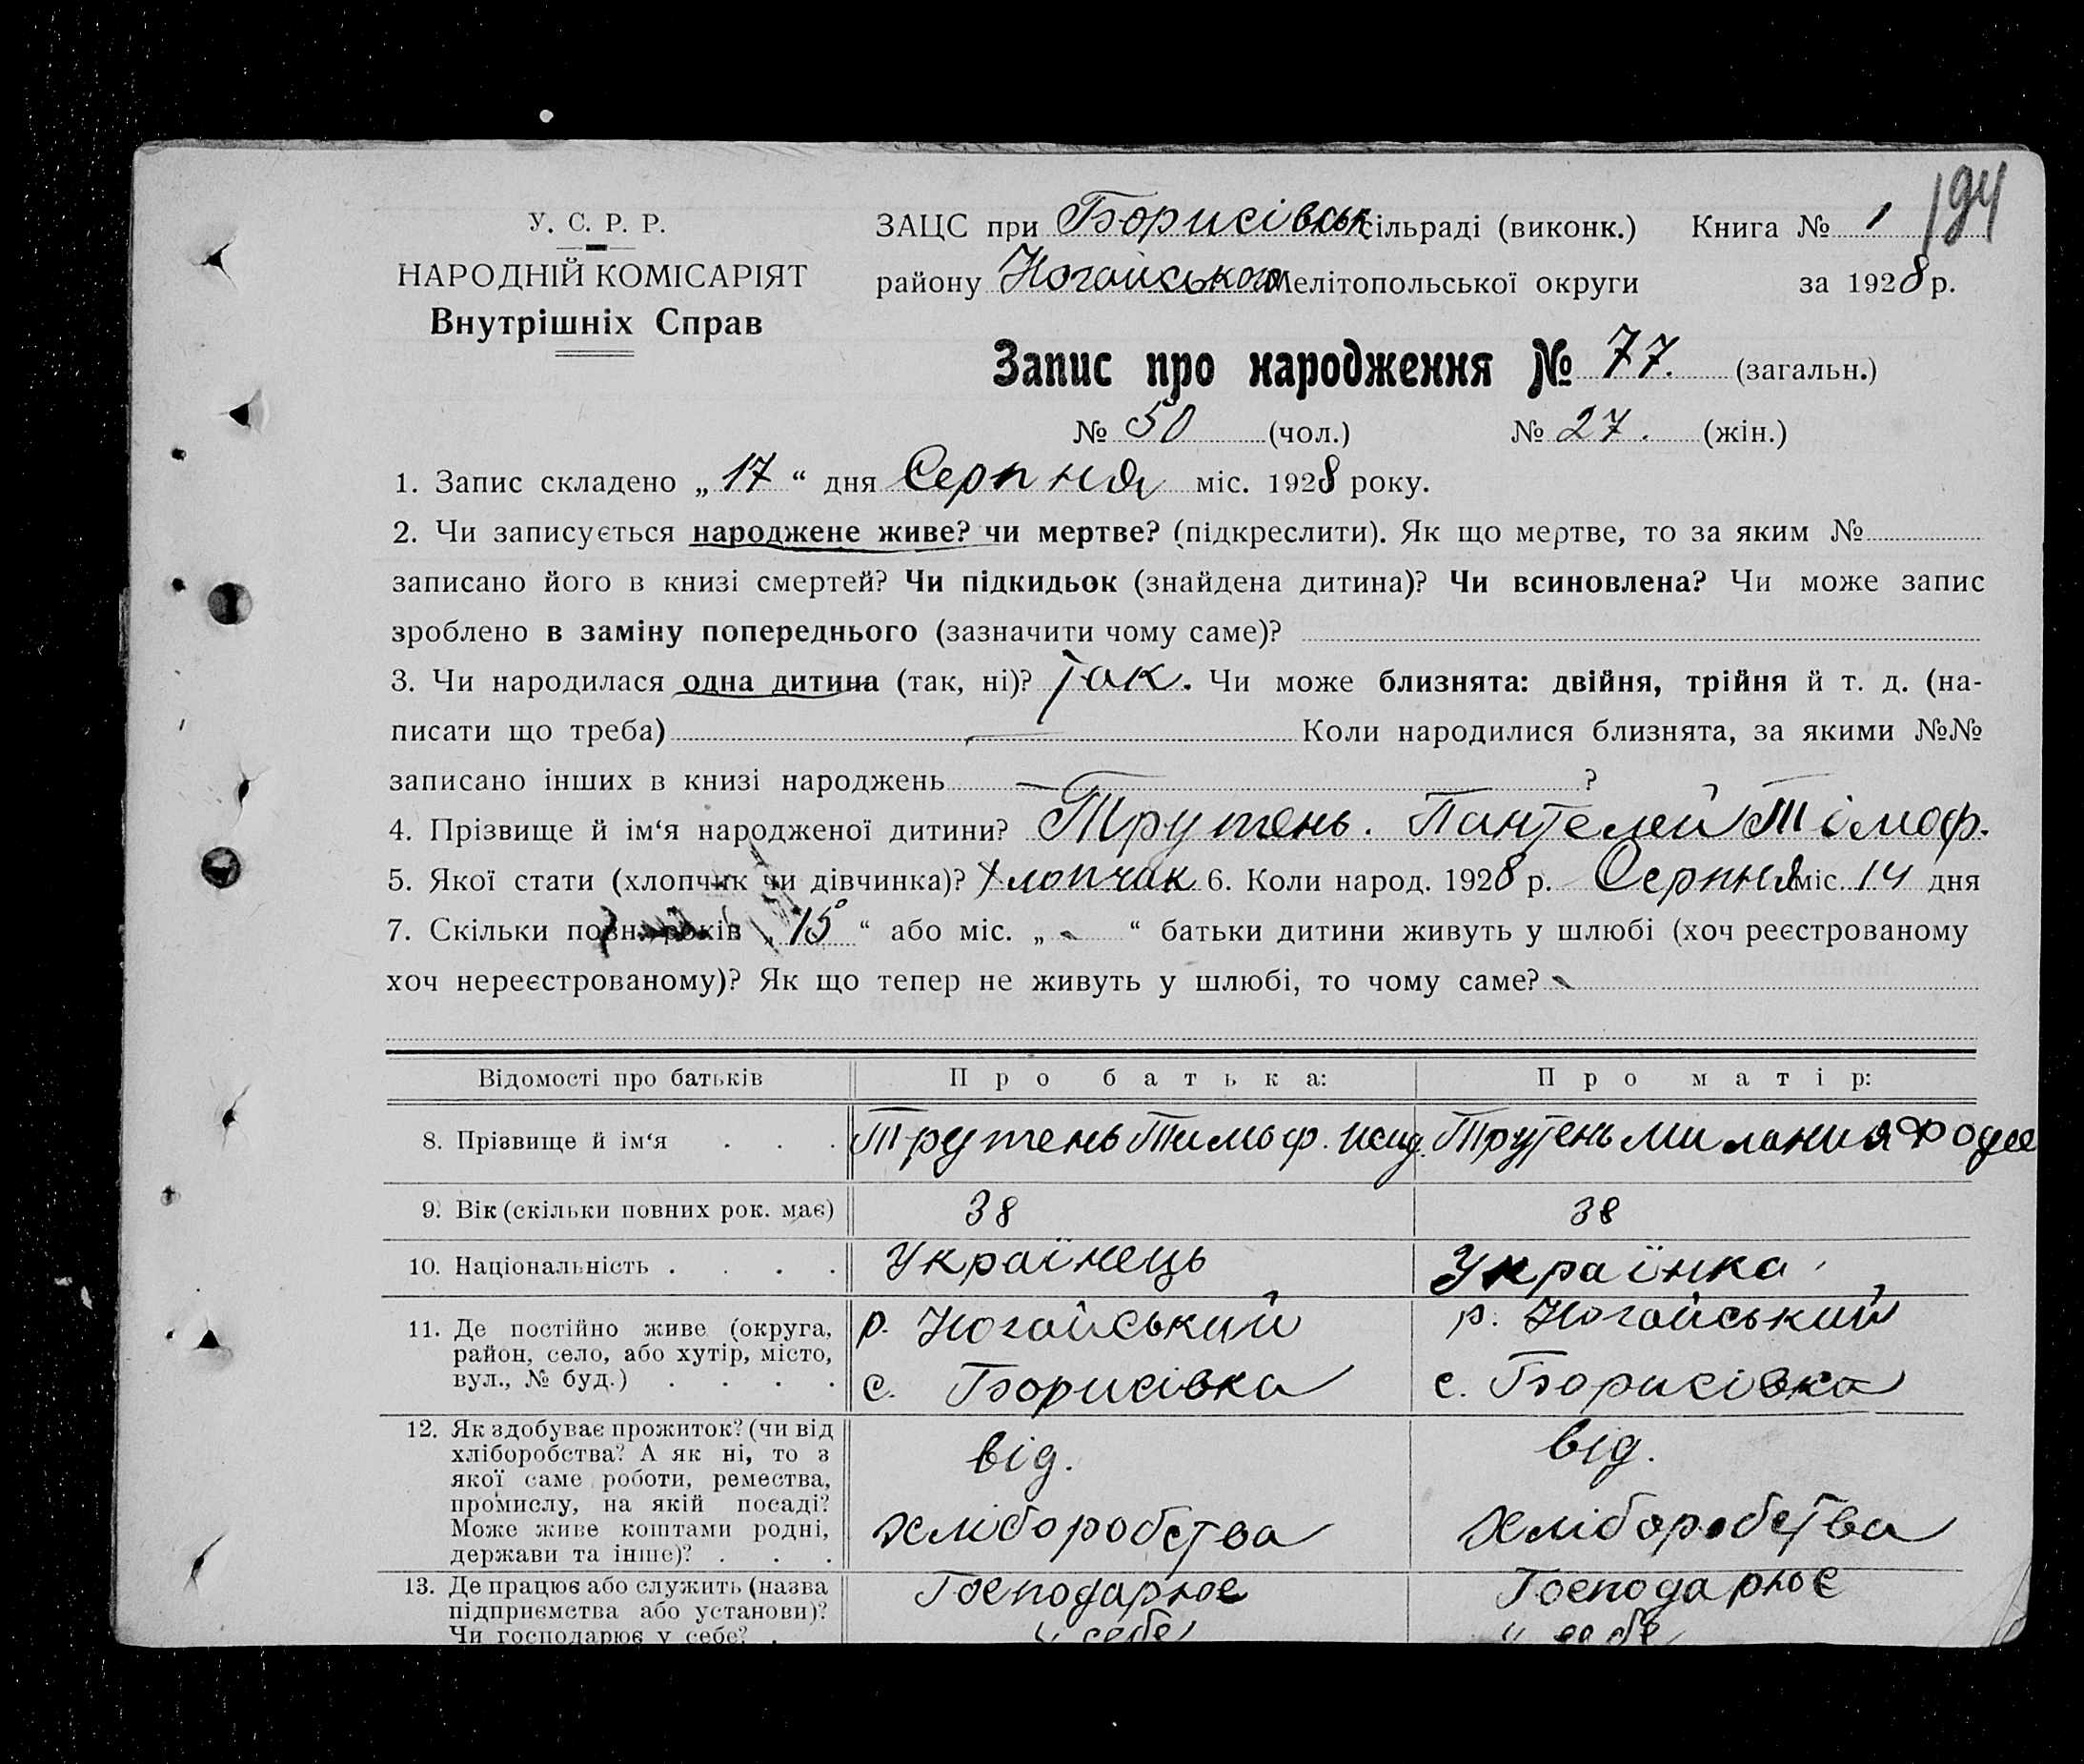 194
У. С. Р. Р.
НАРОДНІЙ КОМІСАРІЯТ
Внутрішніх Справ
ЗАЦС при Борисівськ сільраді (виконк.) Книга № 1
району Ногайського Мелітопольської округи за 1928 р.
Запис про народження № 77. (загальн.)
№ 50 (чол.) № 27. (жін.)
1. Запис складено „ 17 “ дня Серпня міс. 1928 року.
2. Чи записується народжене живе? чи мертве? (підкреслити). Як що мертве, то за яким №
записано його в книзі смертей? Чи підкидьок (знайдена дитина)? Чи всиновлена? Чи може запис
зроблено в заміну попереднього (зазначити чому саме)?
3. Чи народилася одна дитина (так, ні)? Так. Чи може близнята: двійня, трійня й т. д. (на-
писати що треба) — Коли народилися близнята, за якими №№
записано інших в книзі народжень — ?
4. Прізвище й ім‘я народженої дитини? Трутень. Пантелей Тімоф.
5. Якої стати (хлопчик чи дівчинка)? Хлопчак 6. Коли народ. 1928 р. Серпня міс. 14 дня
7. Скільки повн. років „ 15 “ або міс. „ - “ батьки дитини живуть у шлюбі (хоч реєстрованому
хоч нереєстрованому)? Як що тепер не живуть у шлюбі, то чому саме? -
Відомості про батьків Про батька: Про матір:
8. Прізвище й ім‘я . . . Трутень Тимоф. Исид. Трутень Милания Фодее
9. Вік (скільки повних рок. має) 38 38
10. Національність . . . . Українець Українка
11. Де постійно живе (округа, район, село, або хутір, місто, вул., № буд.) . . . .
р. Ногайський
с. Борисівка
р. Ногайський
с. Борисівка
12. Як здобуває прожиток? (чи від хліборобства? А як ні, то з якої саме роботи, ремества, промислу, на якій посаді? Може живе коштами родні, держави та інше)? . . .
від.
хліборобства
від.
хліборобства
13. Де працює або служить (назва підприємства або установи)? Чи господарює у себе? .
Господарює
у себе
Господарює
у себе